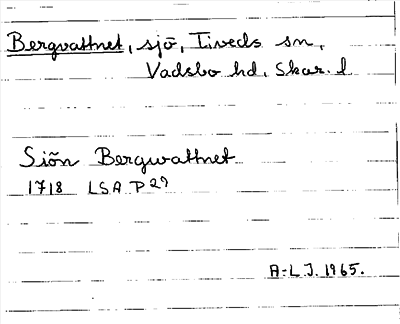 Bergvattnet, sjö, Tiveds sn,
Vadsbo hd, Skar. l
Siön Bergwattnet
1718 LSA P 29
A-L J. 1965.